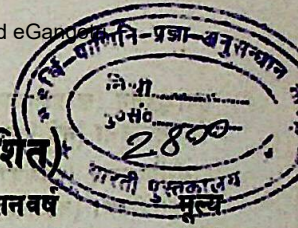 d eGangotri
र्षि-पाणिनि-प्रज्ञा-अनुसन्धान
नि॰श्री..........
पु॰सं॰..........
2800
भारती पुस्तकालय
शित)
न वर्ष
मूल्य